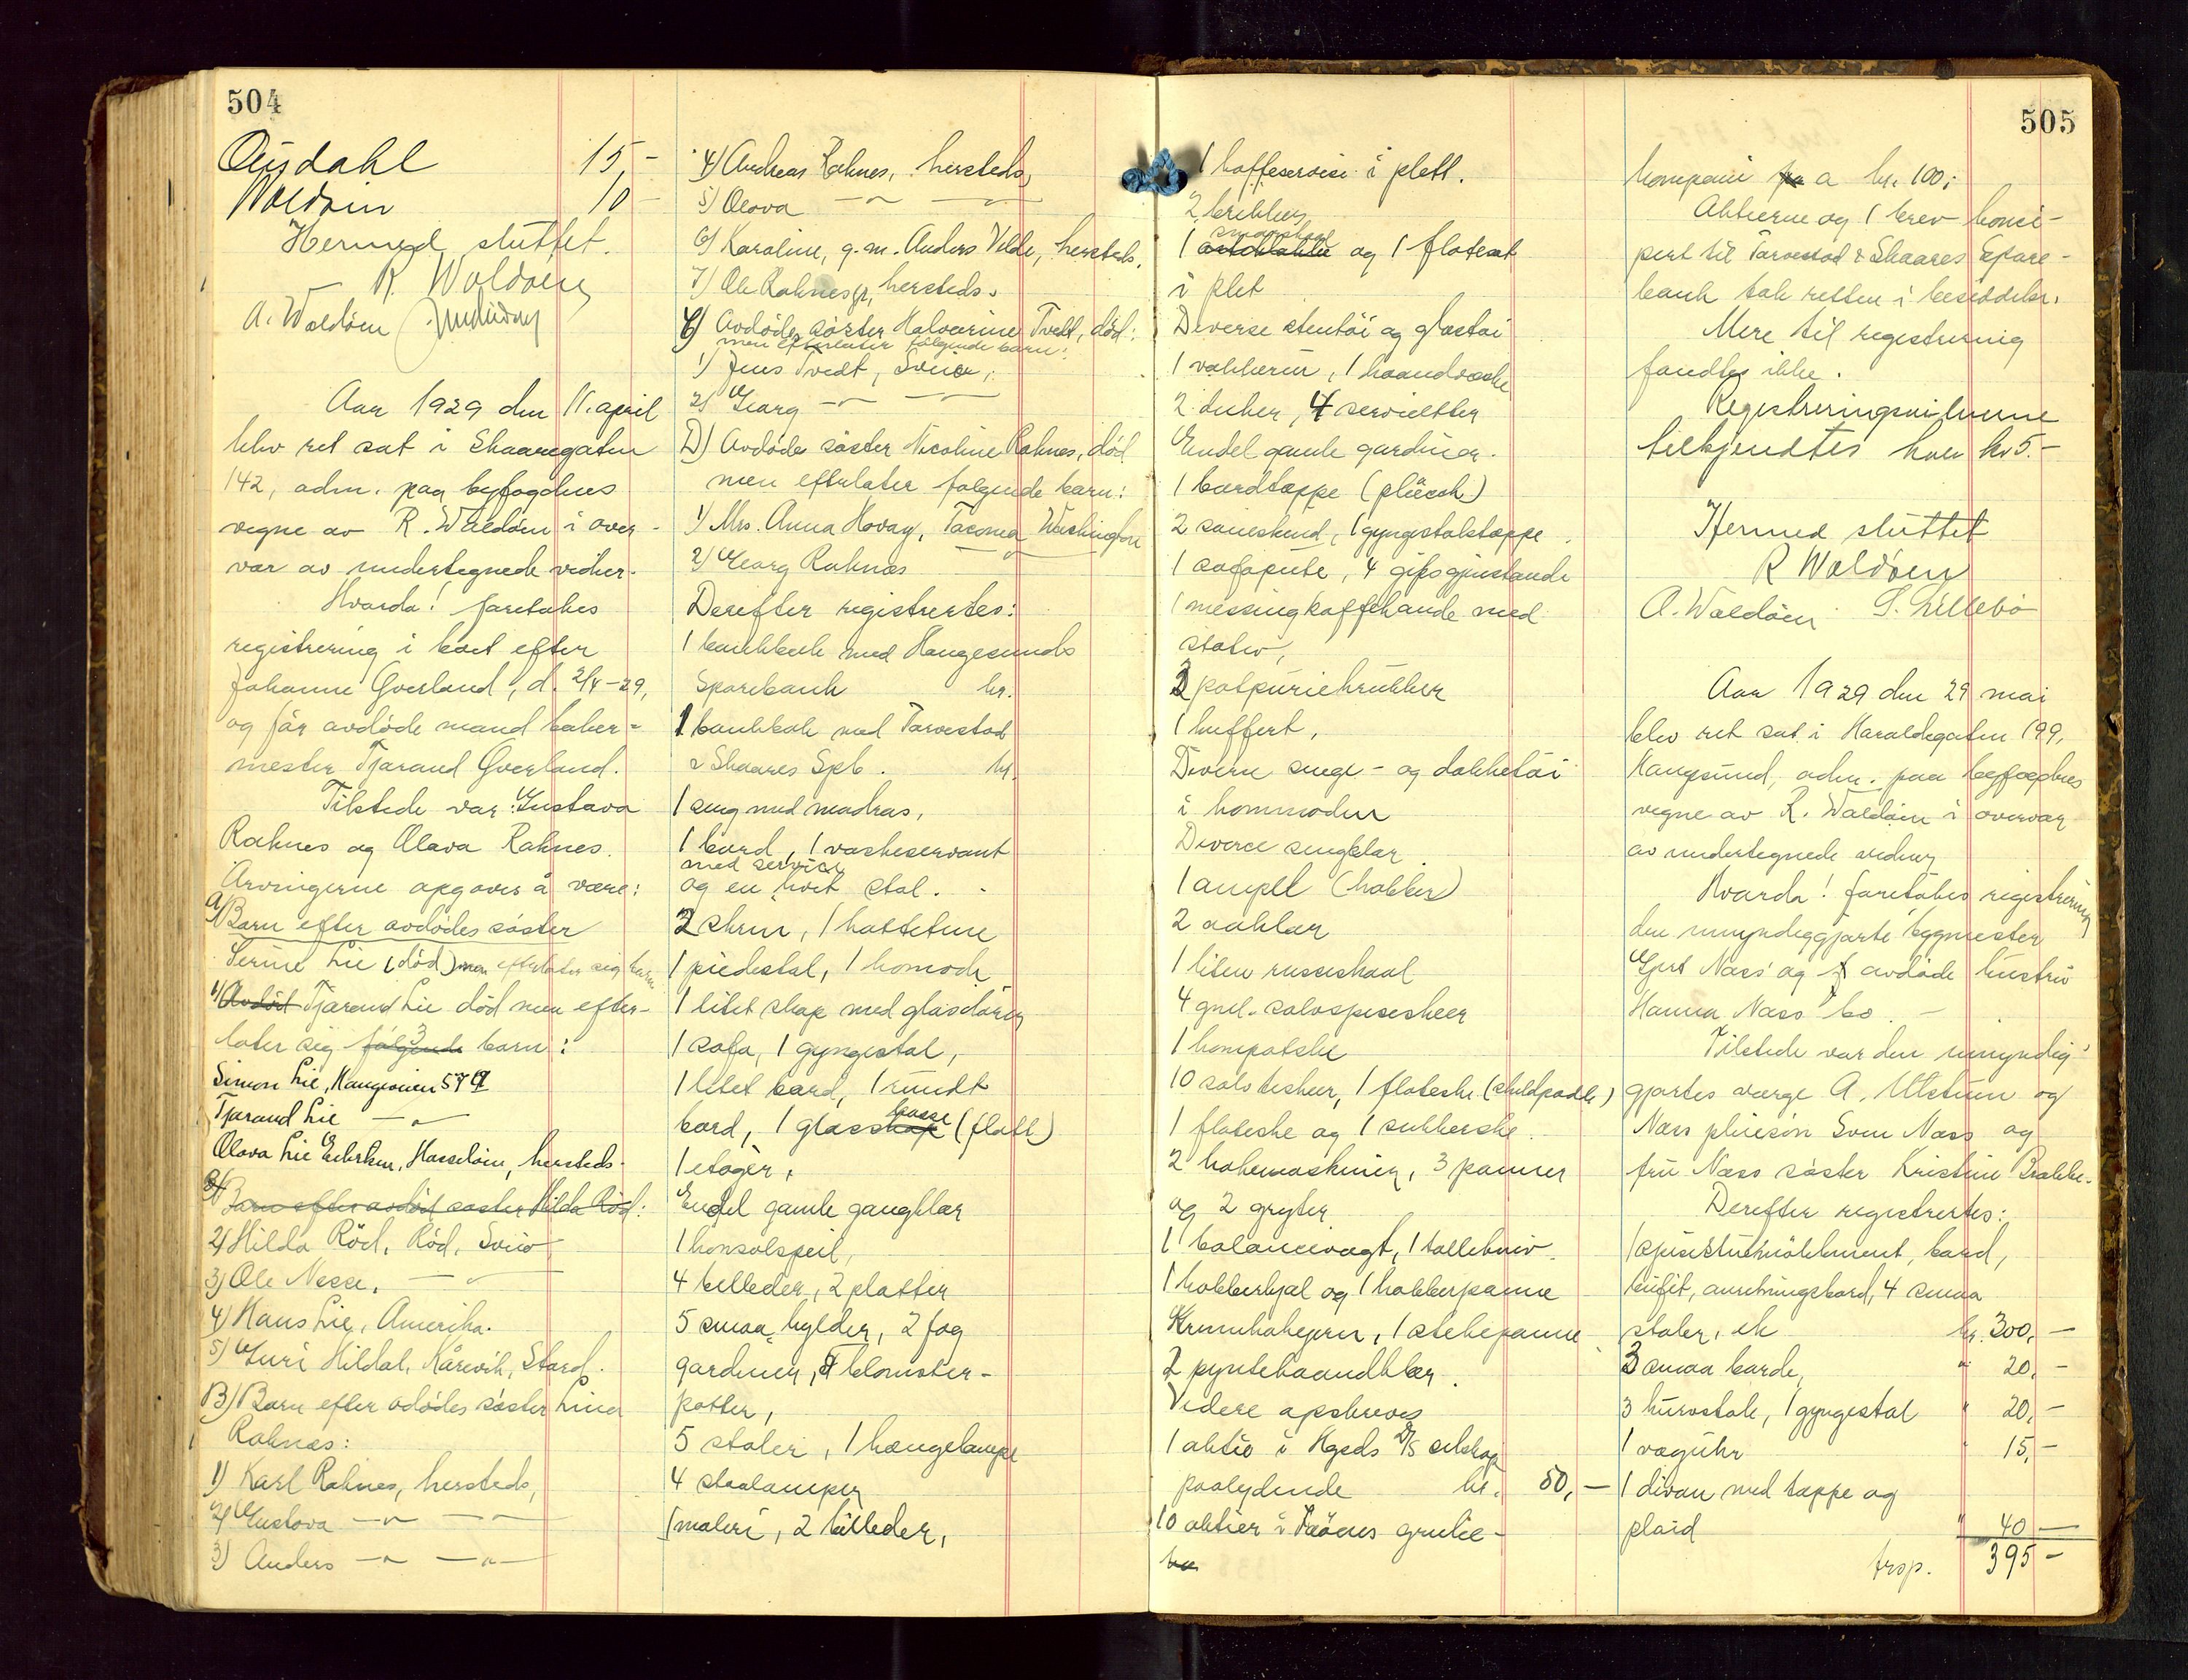 504
Ousdahl 15,-
Waldøin 10-
Hermed sluttet.
R. Waldøen
A. Waldöen
Aar 1929 den 11. april
blev ret sat i Skaaregaten
142, adm. paa byfogdens
vegne av R. Waldöen i over-
vær av undertegnede vidner.
Hvorda! foretokes
registrering i boet efter
Johanne Goerland, d. 2/4-29,
og før avdöde mand baker-
mester Tjerand Goerland.
Tilstede var: Gustava
Rabnes og Olava Rabnes.
Arvingerne opgaves å være:
A) Barn efter avdödes söster
Serine Lie (död) men efterlater sig barn
1) Avdöd Tjerand Lie död men efter-
later sig følgende 3 barn:
Simon Lie, Haugeveien 57
Tjerand Lie —"—
Olava Lie Eriksen, Hasseløen, hersteds.
B) Barn efter avdöd söster Hilda Röd:
2) Hilda Röd, Röd, Sveio
3) Ole Nesse, —"—
4) Hans Lie, Amerika.
5) Guri Hildal, Kårevik, Stord.
B) Barn efter avdödes söster Lina
Rabnes:
1) Karl Rabnes, hersteds,
2) Gustava —"— —"—
3) Anders —"— —"—
4) Andreas Rabnes, hersteds,
5) Olava —"— —"—
6) Karoline, g.m. Anders Velde, hersteds.
7) Ole Rabnes jr, hersteds.
C) Avdödes söster Halvorine Tvedt, död:
men efterlater følgende barn:
1) Jens Tvedt, Sveio,
2) Georg —"— —"—
D) Avdödes söster Nicoline Rabnes, död
men efterlater følgende barn:
1) Mrs. Anna Hovay, Tacoma Washington
2) Georg Rabnes —
Derefter registrertes:
1 bankbok med Haugesunds
Sparebank kr.
1 bankbok med Torvestad
& Skaares Spb. kr.
1 seng med madras,
1 bord, 1 vaskeservant
med service
og en hvit stol.
2 skrin, 1 hatteture
1 piedestal, 1 komode
1 litet skap med glasdører
1 sofa, 1 gyngestol,
1 litet bord, 1 rundt
bord, 1 glasskap kasse (flatt)
1 etagér,
Endel gamle gangklær
1 konsolspeil,
4 billeder, 2 platter
5 smaa hylder, 2 fag
gardiner, 4 blomster-
potter,
5 stoler, 1 hængelampe
4 staalamper
1 maleri, 2 billeder,
505
1 kaffeservise i plett.
2 brikker
smørskaal
1 og 1 fløtesat
i plet
Diverse stentöi og glastöi
1 vækkerur, 1 haandvæske
2 duker, 4 servietter
Endel gamle gardiner.
1 bordteppe (plüsch)
2 saueskind, 1 gyngestolsteppe
1 sofapute, 4 gipsgjenstande
1 messingkaffekande med
stativ,
3 potpuriekrukker
1 kuffert,
Diverse senge- og dækketöi
i kommoden
Diverse sengklær
1 ampel (kobber)
2 aaklær
1 liten russeskaal
4 gml. sølvspiseskeer
1 kompotske
10 sölvteskeer, 1 fløteske (skildpadde)
1 fløteske og 1 sukkerske.
2 kokemaskiner, 3 panner
og 2 gryter
1 balancevægt, 1 tællekniv.
1 kobberkjel og 1 kobberpanne
Krumkakejern, 1 stekepanne
2 pyntehaandklær.
Videre opskreves
1 aktie i Hgsds D/S selskap
paalydende kr. 50,-
10 aktier i grube-
kompani a kr. 100,-
Aktierne og 1 brev konci-
pert til Torvestad & Skaares Spare-
bank tok retten i besiddelse.
Mere til registrering
fandtes ikke.
Registreringsvidnene
tilkjendtes hver kr 5.-
Hermed sluttet
R Waldöen
A. Waldöen S. Lillebö
Aar 1929 den 29 mai
blev ret sat i Haraldsgaten 199,
Haugesund, adm. paa byfogdens
vegne av R. Waldöen i overvær
av undertegnede vidner
Hvorda! foretokes registrering
den umyndiggjorte bygmester
Gert Næss og avdöde hustru
Hanna Næss' bo. —
Tilstede var den umyndig-
gjortes værge A. Utstrum og
Næss pleiesön Sven Næss og
fru Næss söster Kristine Brække.
Derefter registrertes:
1 spisestuemöblement, bord,
buffet, anretningsbord, 4 smaa
stoler, ek kr. 300,-
3 smaa borde, " 20,-
3 kurvstole, 1 gyngestol " 20,-
1 vægguhr " 15,-
1 divan med teppe og
plaid " 40 -
trsp. 395 -